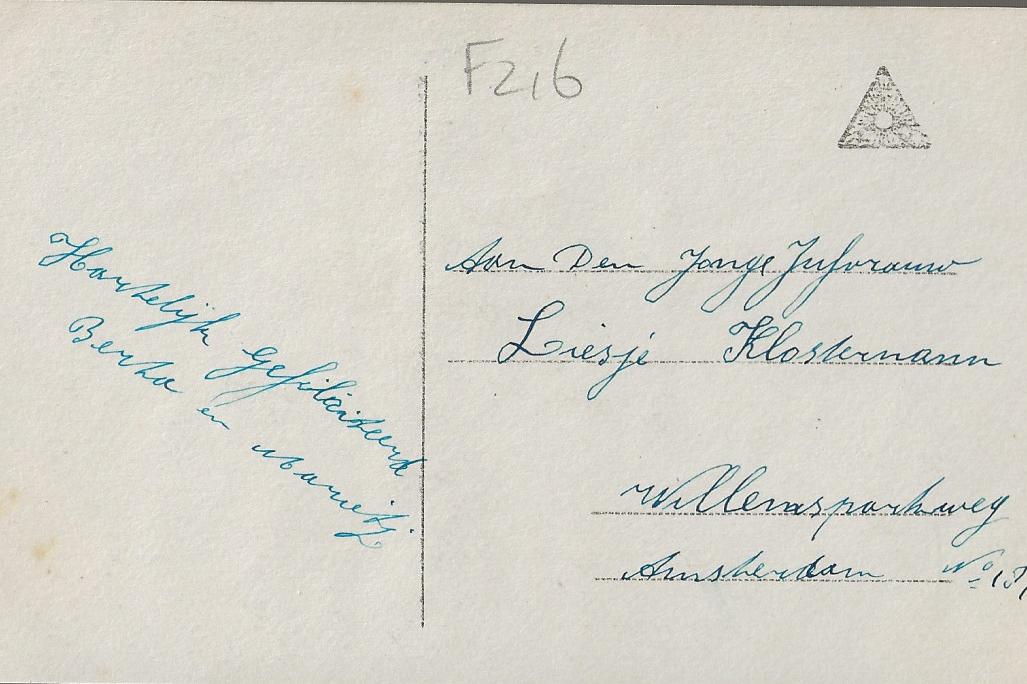 F216
Hartelijk Gefiliciteerd
Berta en Marietj
Aan Den Jonge Jufvrouw
Liesje Klostermann
Willemsparkweg
Amsterdam No